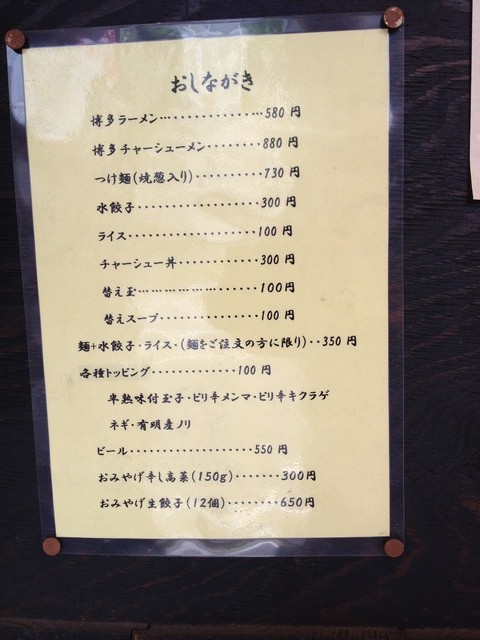 おしながき
博多ラーメン･･････････････580 円
博多チャーシューメン････････880 円
つけ麺(焼葱入り)･･････････730 円
水餃子･･････････････････300 円
ライス･･･････････････････100 円
チャーシュー丼････････････300 円
替え玉………………･････100円
替えスープ･･･････････････100 円
麺+水餃子・ライス・(麺をご注文の方に限り)･･350 円
各種トッピング･････････････100 円
半熟味付玉子・ピリ辛メンマ・ピリ辛キクラゲ
ネギ・有明産ノリ
ビール････････････････････550 円
おみやげ辛し高菜(150g)･･･････300円
おみやげ生餃子(12個)････････650円